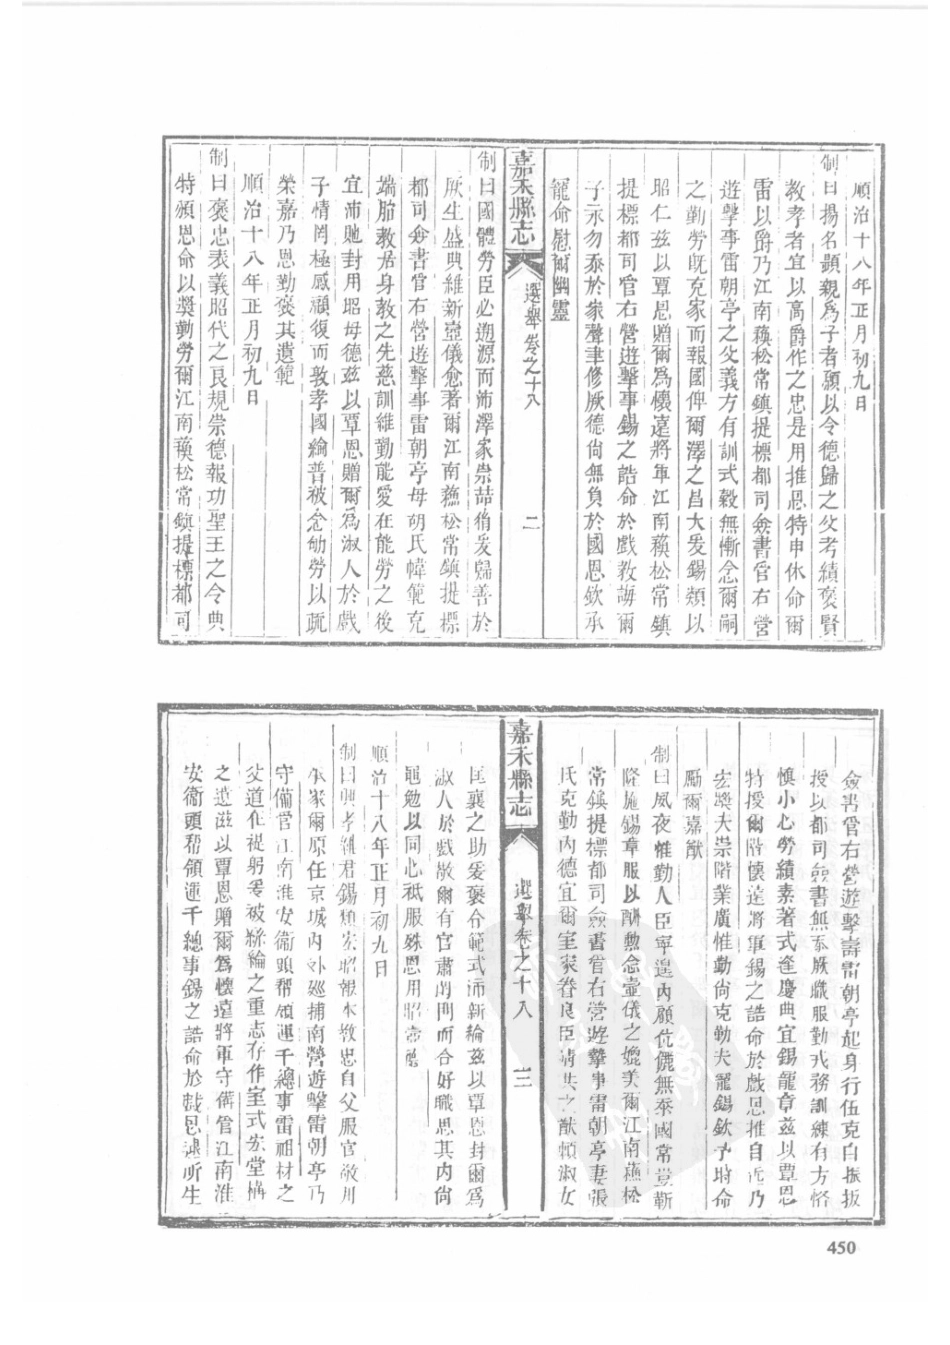 順治十八年正月初九日
制曰揚名顯親爲子者願以令德歸之父考績褒賢
教孝者宜以高爵作之忠是用推恩特申休命爾
雷以爵乃江南蘓松常鎮提標都司僉書管右營
遊擊事雷朝亭之父義方有訓式穀無慚念爾嗣
之勤勞旣克家而報國俾爾澤之昌大爰錫類以
昭仁兹以覃恩贈爾爲懷遠將軍江南蘓松常鎮
提標都司管右營遊擊事錫之誥命於戲教誨爾
子永勿忝於家聲聿修厥德尙無負於國恩欽承
寵命慰爾幽靈
嘉禾縣志 選舉卷之十八 二
制曰國體勞臣必遡源而沛澤家崇喆脩爰歸善於
厥生盛典維新壼儀愈著爾江南蘓松常鎮提標
都司僉書管右營遊擊事雷朝亭母胡氏幃範克
端胎教居身教之先慈訓維勤能愛在能勞之後
宜沛貤封用昭母德兹以覃恩贈爾爲淑人於戲
子情罔極感顧復而敦孝國綸普被念劬勞以疏
榮嘉乃恩勤褒其遺範
順治十八年正月初九日
制曰褒忠表義昭代之良規崇德報功聖王之令典
特頒恩命以奬勤勞爾江南蘓松常鎮提標都司
僉書管右營遊擊壽雷朝亭起身行伍克自振拔
授以都司僉書無忝厥職服勤戎務訓練有方恪
愼小心勞績素著式逢慶典宜錫寵章兹以覃恩
特授爾階懷遠將軍錫之誥命於戲恩推自近乃
宏奬夫崇階業廣惟勤尙克勤夫寵錫欽予時命
勵爾嘉猷
制曰夙夜惟勤人臣寧遑內顧伉儷無忝國常豈靳
隆施錫章服以酬勲念壼儀之媲美爾江南蘓松
常鎮提標都司僉書管右營遊擊事雷朝亭妻張
氏克勤內德宜爾室家眷良臣靖共之猷頼淑女
嘉禾縣志 選舉卷之十八 三
匡襄之助爰褒令範式沛新綸兹以覃恩封爾爲
淑人於戲敬爾有官肅閨門而合好職思其內尙
黽勉以同心祗服殊恩用昭
順治十八年正月初九日
制曰興孝報君錫類宏昭報本敎忠自父服官敬用
承家爾原任京城內外廵捕南營遊擊雷朝亭乃
守備管江南淮安衞頭帮領運千總事雷祖材之
父道在褆躬爰被絲綸之重志存作室式宏堂構
之遺兹以覃恩贈爾爲懷遠將軍守備管江南淮
安衞頭帮領運千總事錫之誥命於戲恩逮所生
450